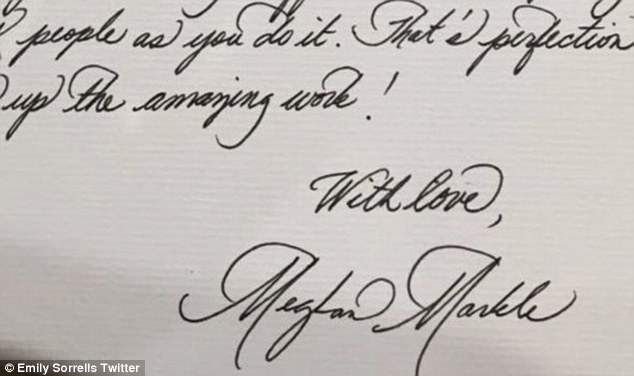 people as you do it. That's perfection
up the amazing work!
With love,
Meghan Markle
© Emily Sorrells Twitter